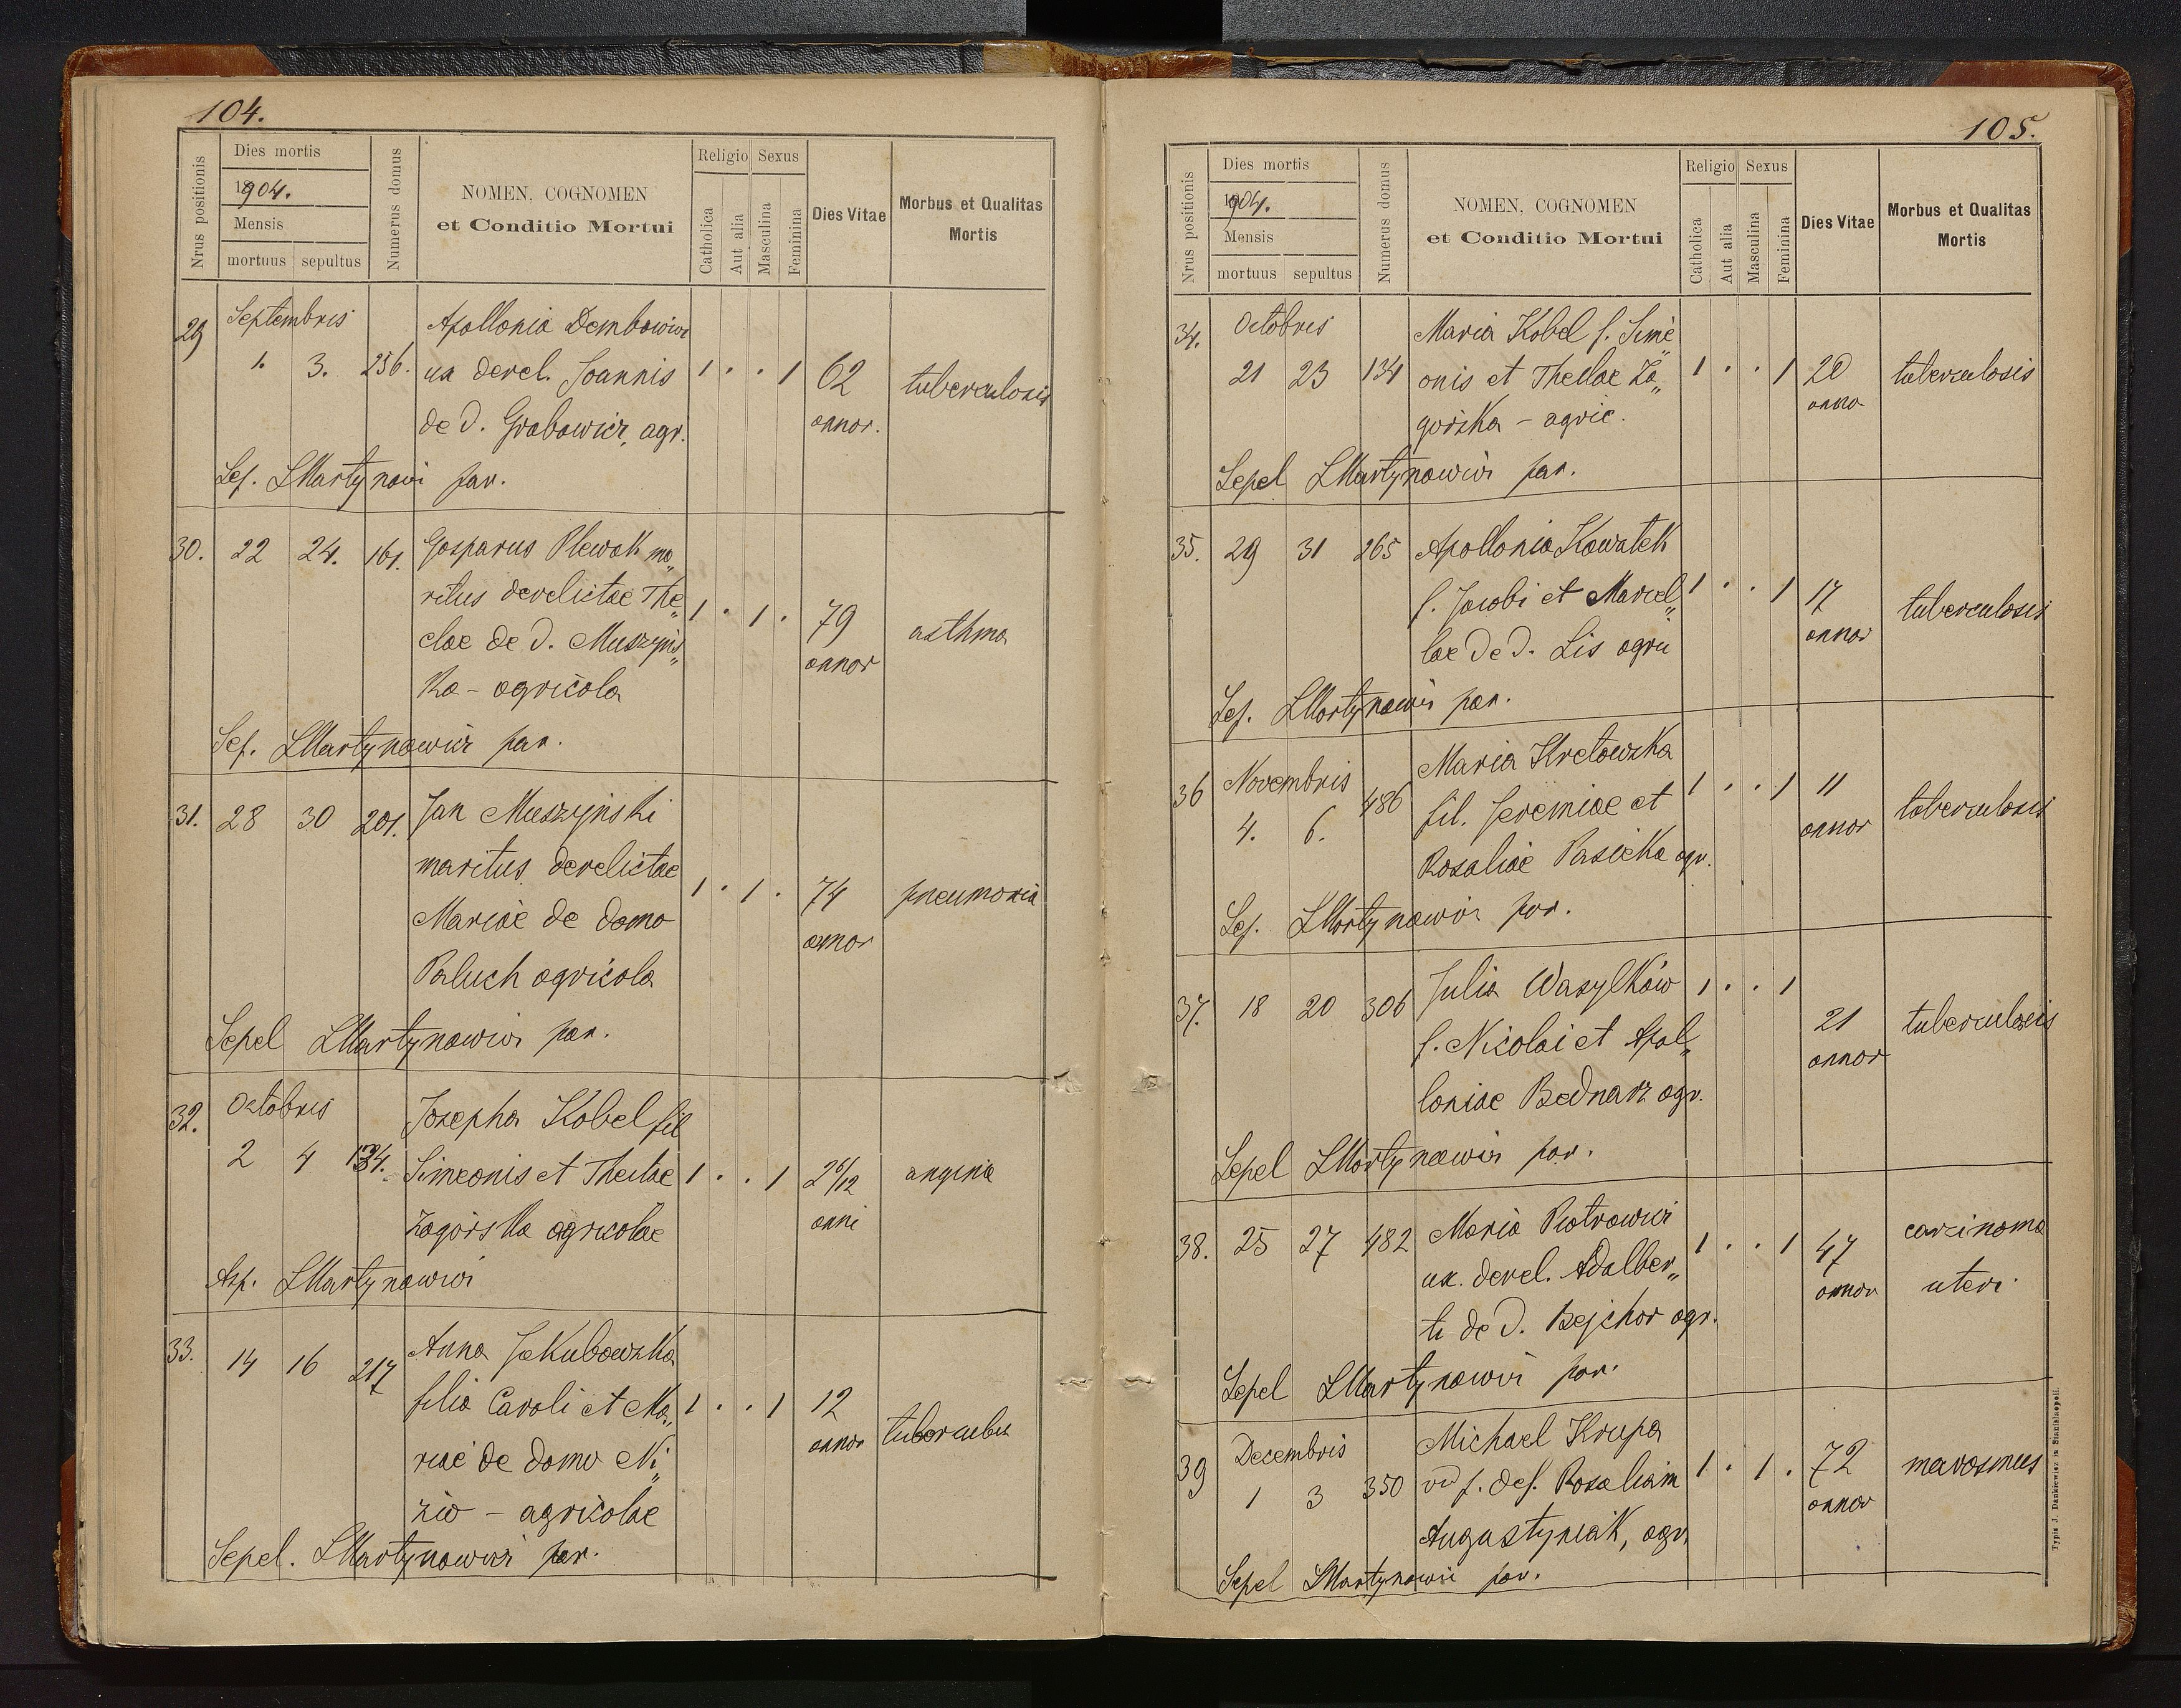 104.
Nrus positionis
Dies mortis
1904.
Mensis
mortuus sepultus
Numerus domus
NOMEN, COGNOMEN
et Conditio Mortui
Religio Sexus
Catholica
Aut alia
Masculina
Feminina
Dies Vitae
Morbus et Qualitas
Mortis
29 Septembris Apollonia Dembowicz
1. 3. 256. ux derel. Joannis 1 . . 1 62 tuberculosis
de d. Grabowicz, agr. annor.
Sep. LMartynowi par.
30. 22 24. 161. Gasparus Plewak ma„
ritus derelictae The„ 1 . 1 . 79 asthma
clae de d. Muszyńs„ annor
ka - agricola
Sep. LMartynowicz par.
31. 28 30 201. Jan Muszyński
maritus derelictae 1 . 1 . 74 pneumonia
Mariae de domo annor
Paluch agricola
Sepel LMartynowicz par.
32. Octobris Josepha Kobel fil
2 4 134. Simeonis et Theclae 1 . . 1 2 6/12 angina
Zagórska agricolae anni
Asp. LMartynowicz
33. 14 16 217 Anna Jakubowska
filia Caroli et Ma„ 1 . . 1 12 tubercules
riae de domo Ni„ annor
zio - agricolae
Sepel. LMartynowicz par.
105.
Nrus positionis
Dies mortis
1904.
Mensis
mortuus sepultus
Numerus domus
NOMEN, COGNOMEN
et Conditio Mortui
Religio Sexus
Catholica
Aut alia
Masculina
Feminina
Dies Vitae
Morbus et Qualitas
Mortis
34. Octobris Maria Kobel f. Sime„
21 23 134 onis et Theclae Za„ 1 . . 1 20 tuberculosis
górska - agric. anno
Sepel LMartynowicz par.
35. 29 31 265 Apollonia Kowalek
f. Jacobi et Marcel„ 1 . . 1 17 tuberculosis
lae de d. Lis agric annor
Sep. LMartynowicz par.
36 Novembris Maria Kretowska
4. 6. 486 fil. Jeremiae et 1 . . 1 11 tuberculosis
Rosaliae Pasieka agr. annor
Sep. LMartynowicz par.
37. 18 20 306 Julia Wasylków 1 . . 1
f. Nicolai et Apol„ 21 tuberculosis
loniae Bednarz agr. annor
Sepel LMartynowicz par.
38. 25 27 482 Maria Piotrowicz 1 . . 1 47 carcinoma
ux. derel. Adalber„ annor uteri
ti de d. Bejchor agr.
Sepel LMartynowicz par.
39 Decembris Michael Krupa
1 3 350 vd p. def. Rosaliam 1 . 1 . 72 marasmus
Augustyniak, agr. annor
Sepel LMartynowicz par.
Typis J. Dankiewicz in Stanislaopoli.